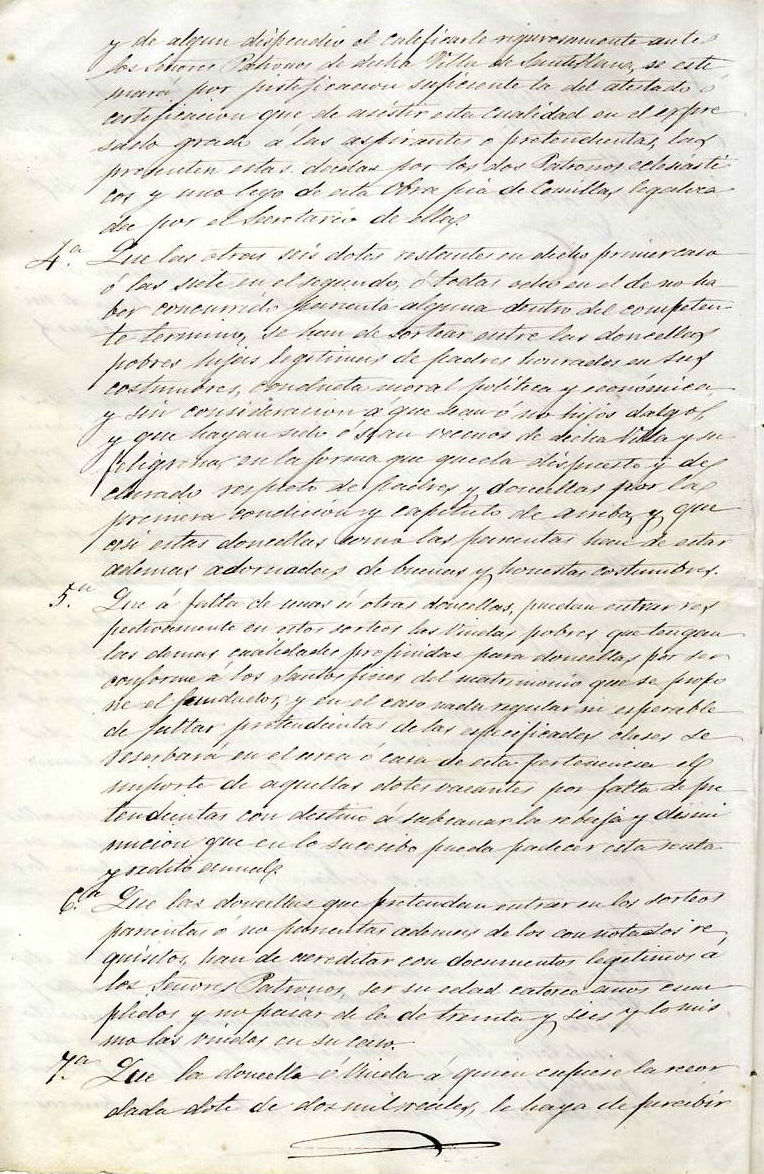 y de algun dispendio el calificarle rigurosamente ante
los Señores Patronos de dicha Villa de Santillana, se esti
mará por justificacion suficiente la del atestado ó
certificacion que de asistir esta cualidad en el espre
sado grado á las aspirantes o pretendientas, las
presenten estas dadas por los dos Patronos eclesiasti
cos y uno lego de esta Obra pia de Comillas legaliza
da por el Secretario de ella.
4.a Que las otras seis dotes restantes en dicho primer caso
ó las siete en el segundo, ó todas ocho en el de no ha
ber concurrido parienta alguna dentro del competen
te termino, se han de sortear entre las doncellas
pobres hijas legitimas de padres honrados en sus
costumbres, conducta moral politica y económica,
y sin consideracion á que sean ó no hijos dalgo,
y que hayan sido ó sean vecinos de dicha Villa y su
feligresia, en la forma que queda dispuesto y de
clarado respeto de padres y doncellas por la
primera condicion y capitulo de arriba, y que
asi estas doncellas como las parientas han de estar
ademas adornadas de buenas y honestas costumbres.
5.a Que á falta de unas ú otras doncellas, puedan entrar res
pectivamente en estos sorteos las Viudas pobres que tengan
las demas cualidades prefinidas para doncellas por ser
conforme á los Santos fines del matrimonio que se propo
ne el fundador, y en el caso nada regular ni esperable
de faltar pretendientas de las especificadas clases se
reserbará en el arca ó casa de esta pertenencia el
importe de aquellas dotes vacantes por falta de pre
tendientas con destino á subsanar la rebaja y dismi
nucion que en lo sucesibo pueda padecer esta renta
y redito anual.
6.a Que las doncellas que pretendan entrar en los sorteos
parientas ó no parientas ademas de los connotados re
quisitos, han de acreditar con documentos legitimos á
los Señores Patronos, ser su edad catorce años cum
plidos y no pasar de la de treinta y seis y lo mis
mo las viudas en su caso.
7.a Que la doncella ó Viuda á quien cupiere la acor
dada dote de dos mil reales, le haya de percibir